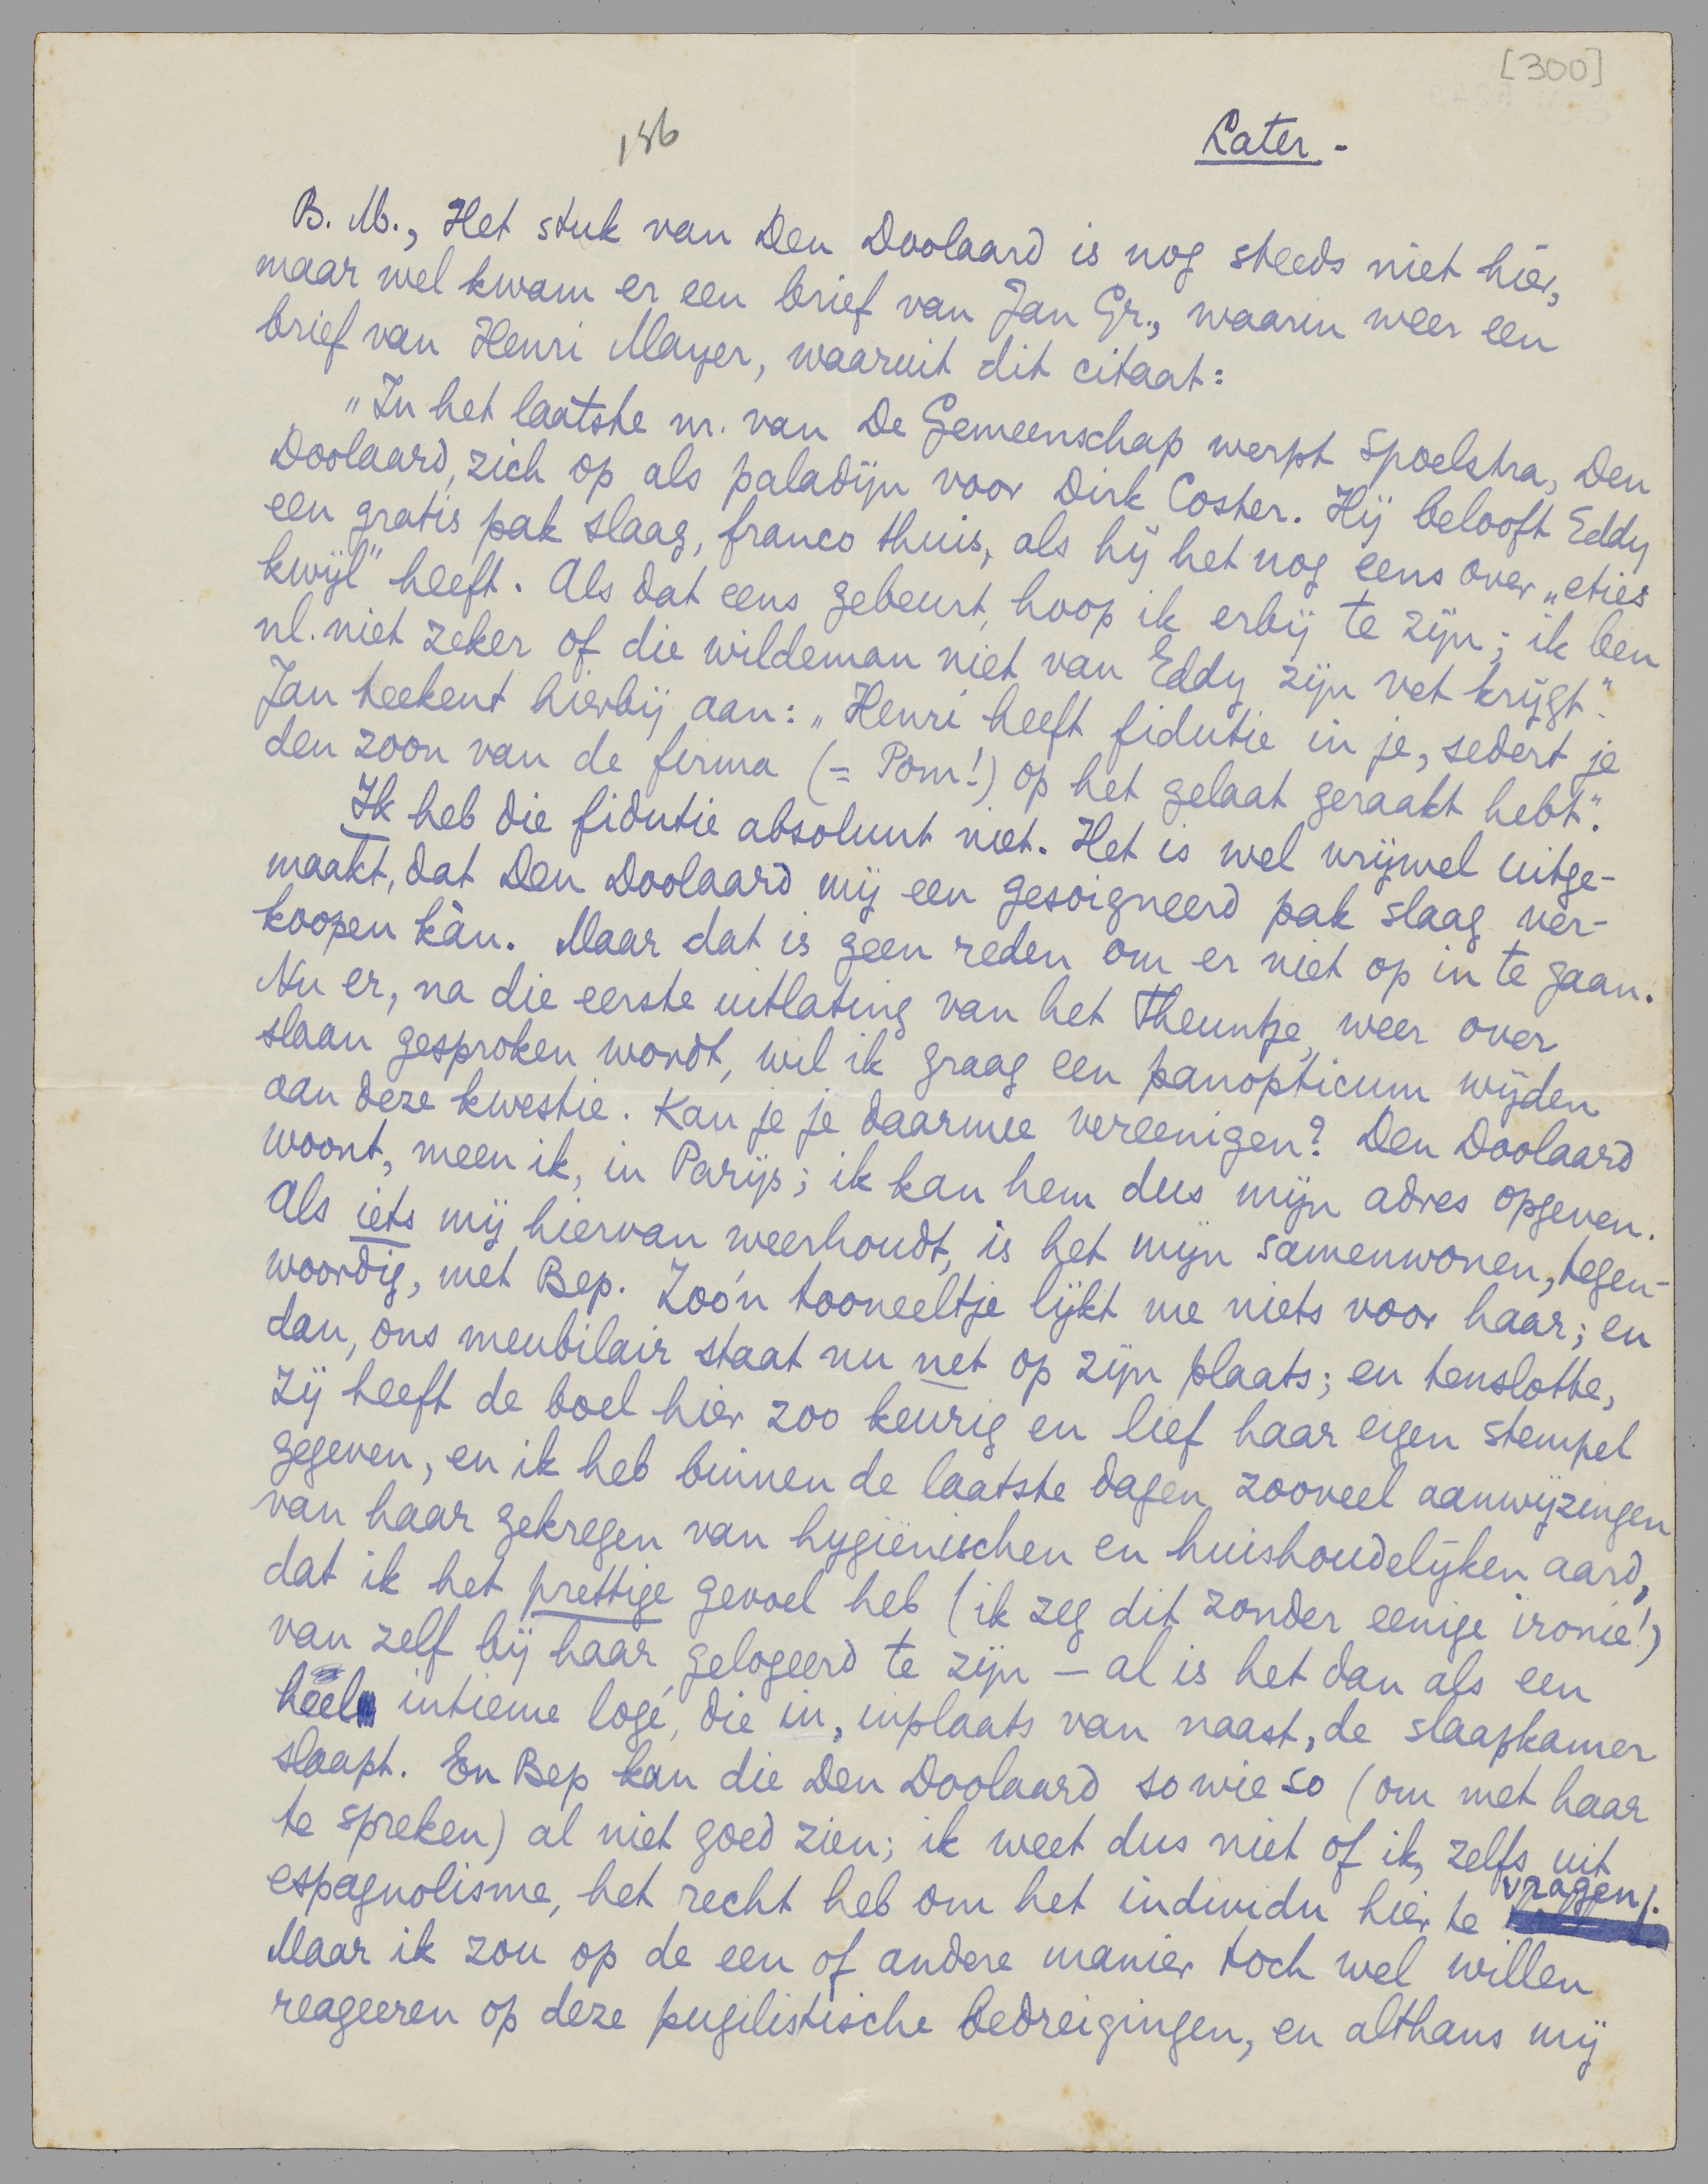 [300]
186
Later -
B. M., Het stuk van Den Doolaard is nog steeds niet hier,
maar wel kwam er een brief van Jan Gr., waarin weer een
brief van Henri Mayer, waaruit dit citaat:
„In het laatste nr. van De Gemeenschap werpt Spoelstra, Den
Doolaard, zich op als paladijn voor Dirk Coster. Hij belooft Eddy
een gratis pak slaag, franco thuis, als hij het nog eens over „eties
kwijl" heeft. Als dat eens gebeurt, hoop ik erbij te zijn; ik ben
nl. niet zeker of die wildeman niet van Eddy zijn vet krijgt".
Jan teekent hierbij aan: „Henri heeft fidutie in je, sedert je
den zoon van de firma (= Pom!) op het gelaat geraakt hebt".
Ik heb die fidutie absoluut niet. Het is wel vrijwel uitge-
maakt, dat Den Doolaard mij een gesoigneerd pak slaag ver-
koopen kàn. Maar dat is geen reden om er niet op in te gaan.
Nu er, na die eerste uitlating van het Theuntje, weer over
slaan gesproken wordt, wil ik graag een panopticum wijden
aan deze kwestie. Kan je je daarmee vereenigen? Den Doolaard
woont, meen ik, in Parijs; ik kan hem dus mijn adres opgeven.
Als iets mij hiervan weerhoudt, is het mijn samenwonen, tegen-
woordig, met Bep. Zoo'n tooneeltje lijkt me niets voor haar; en
dan, ons meubilair staat nu net op zijn plaats; en tenslotte,
zij heeft de boel hier zoo keurig en lief haar eigen stempel
gegeven, en ik heb binnen de laatste dagen zooveel aanwijzingen
van haar gekregen van hygiënischen en huishoudelijken aard,
dat ik het prettige gevoel heb (ik zeg dit zonder eenige ironie!)
van zelf bij haar gelogeerd te zijn — al is het dan als een
heel intieme logé, die in, inplaats van naast, de slaapkamer
slaapt. En Bep kan die Den Doolaard sowieso (om met haar
te spreken) al niet goed zien; ik weet dus niet of ik, zelfs uit
espagnolisme, het recht heb om het individu hier te vragen!.
Maar ik zou op de een of andere manier toch wel willen
reageeren op deze pugilistische bedreigingen, en althans mij